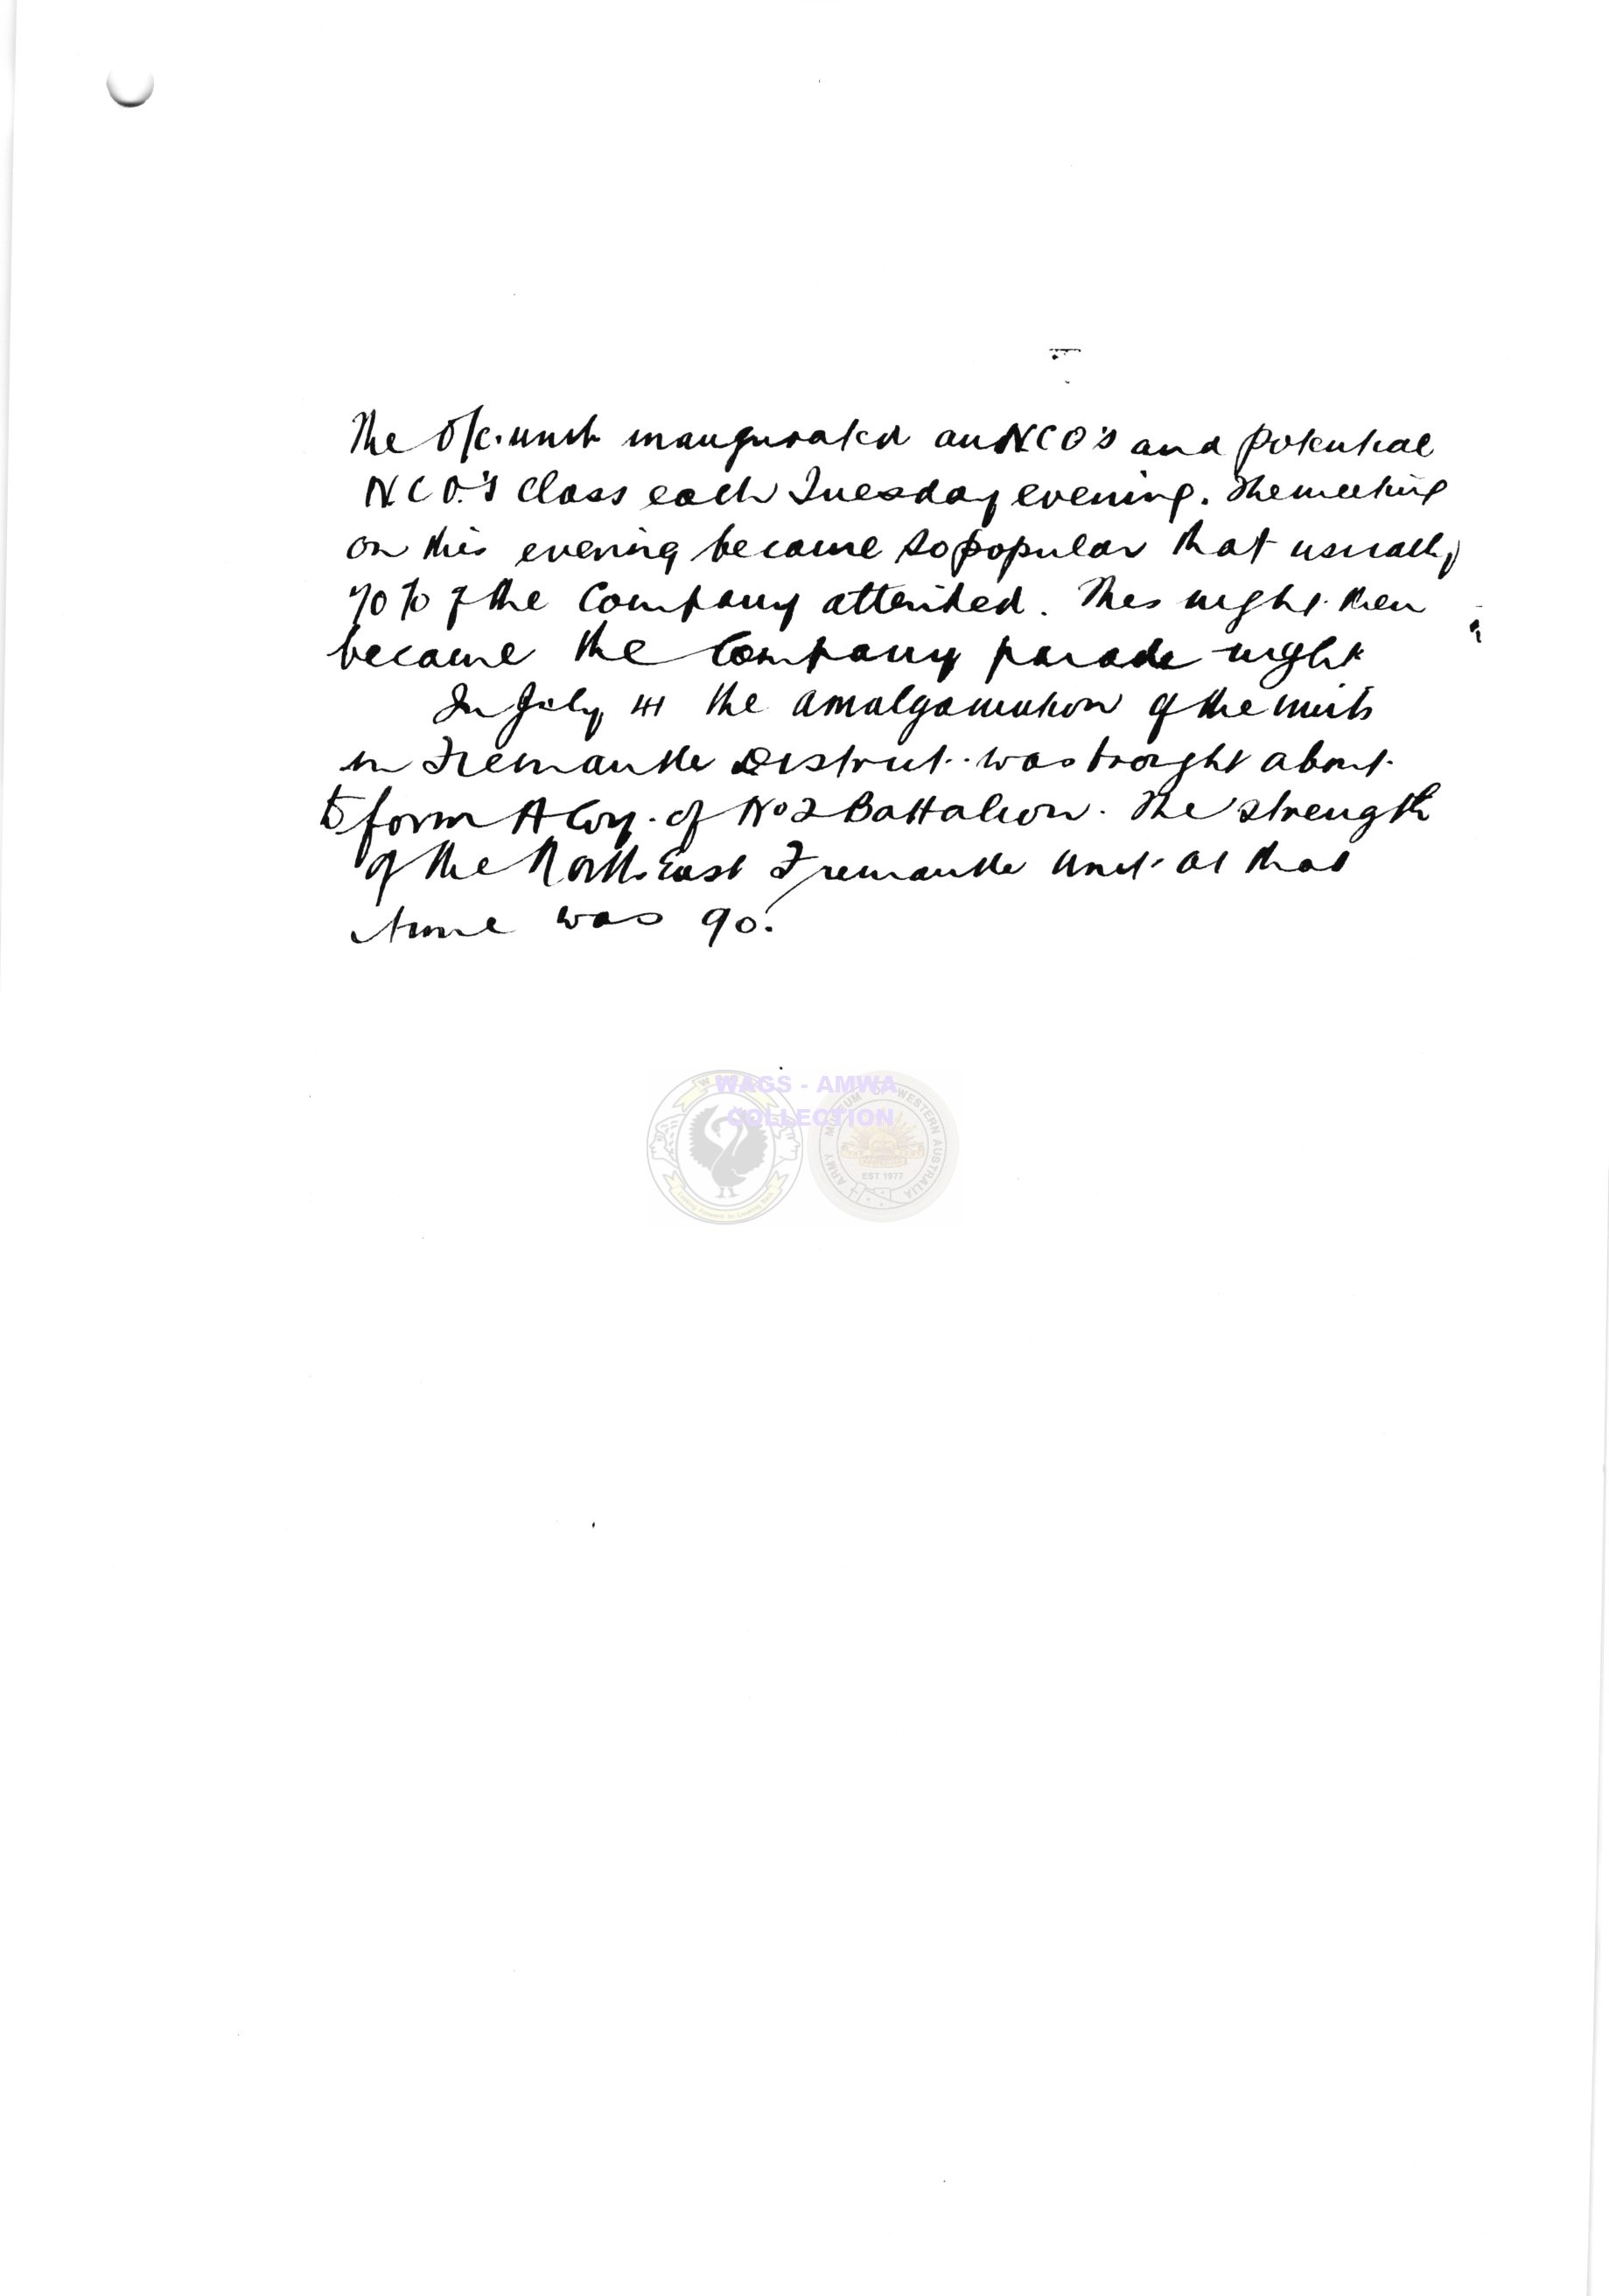 The O/C. unit inaugurated an NCO's and potential
N.C.O.'s class each Tuesday evening. The meeting
on this evening became so popular that usually
70% of the Company attended. This night then
became the Company parade night
In July 41 the amalgamation of the units
in Fremantle District was brought about
to form A Coy. of No 2 Battalion. The strength
of the North East Fremantle Unit at that
time was 90.
WAGS - AMWA
COLLECTION
ARMY MUSEUM OF WESTERN AUSTRALIA
EST 1977